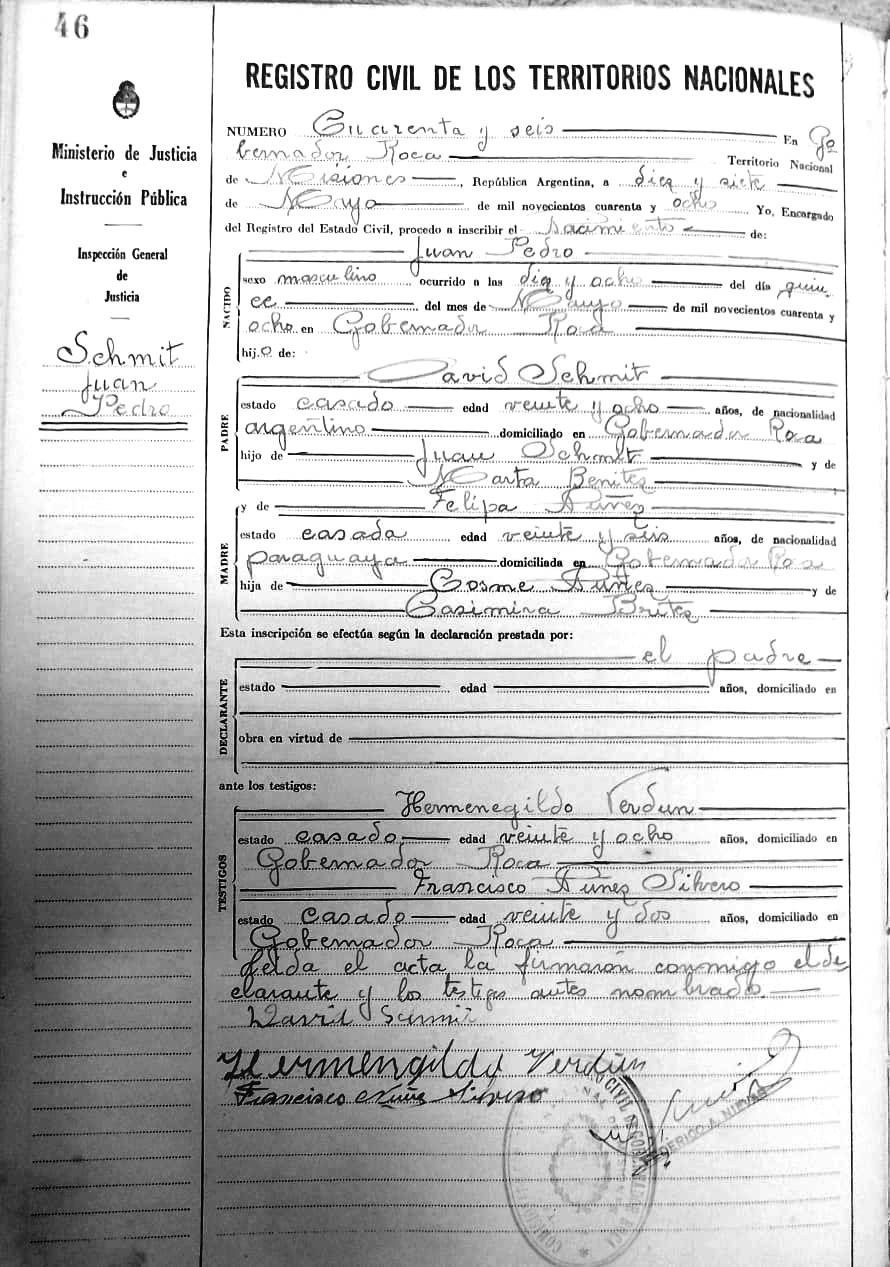 46
Ministerio de Justicia
e
Instrucción Pública
Inspección General
de
Justicia
Schmit
Juan
Pedro
REGISTRO CIVIL DE LOS TERRITORIOS NACIONALES
NUMERO Cuarenta y seis En Go
bernador Roca Territorio Nacional
de Misiones, República Argentina, a diez y siete
de Mayo de mil novecientos cuarenta y ocho Yo, Encargado
del Registro del Estado Civil, procedo a inscribir el nacimiento de:
Juan Pedro
NACIDO
sexo masculino ocurrido a las diez y ocho del día quin
ce del mes de Mayo de mil novecientos cuarenta y
ocho en Gobernador Roca
hijo de:
David Schmit
PADRE
estado casado edad veinte y ocho años, de nacionalidad
argentino domiciliado en Gobernador Roca
hijo de Juan Schmit y de
Marta Benites
MADRE
y de Felipa Núñez
estado casada edad veinte y seis años, de nacionalidad
paraguaya domiciliada en Gobernador Roca
hija de Cosme Núñez y de
Casimira Brites
Esta inscripción se efectúa según la declaración prestada por:
el padre
DECLARANTE
estado edad años, domiciliado en
obra en virtud de
ante los testigos:
TESTIGOS
Hermenegildo Verdun
estado casado edad veinte y ocho años, domiciliado en
Gobernador Roca
Francisco Núñez Silvero
estado casado edad veinte y dos años, domiciliado en
Gobernador Roca
Leida el acta la firmaron conmigo el de
clarante y los testigos antes nombrado.
David
Hermengildo Verdün
Francisco Nuñe Silvero
CIVIL DE